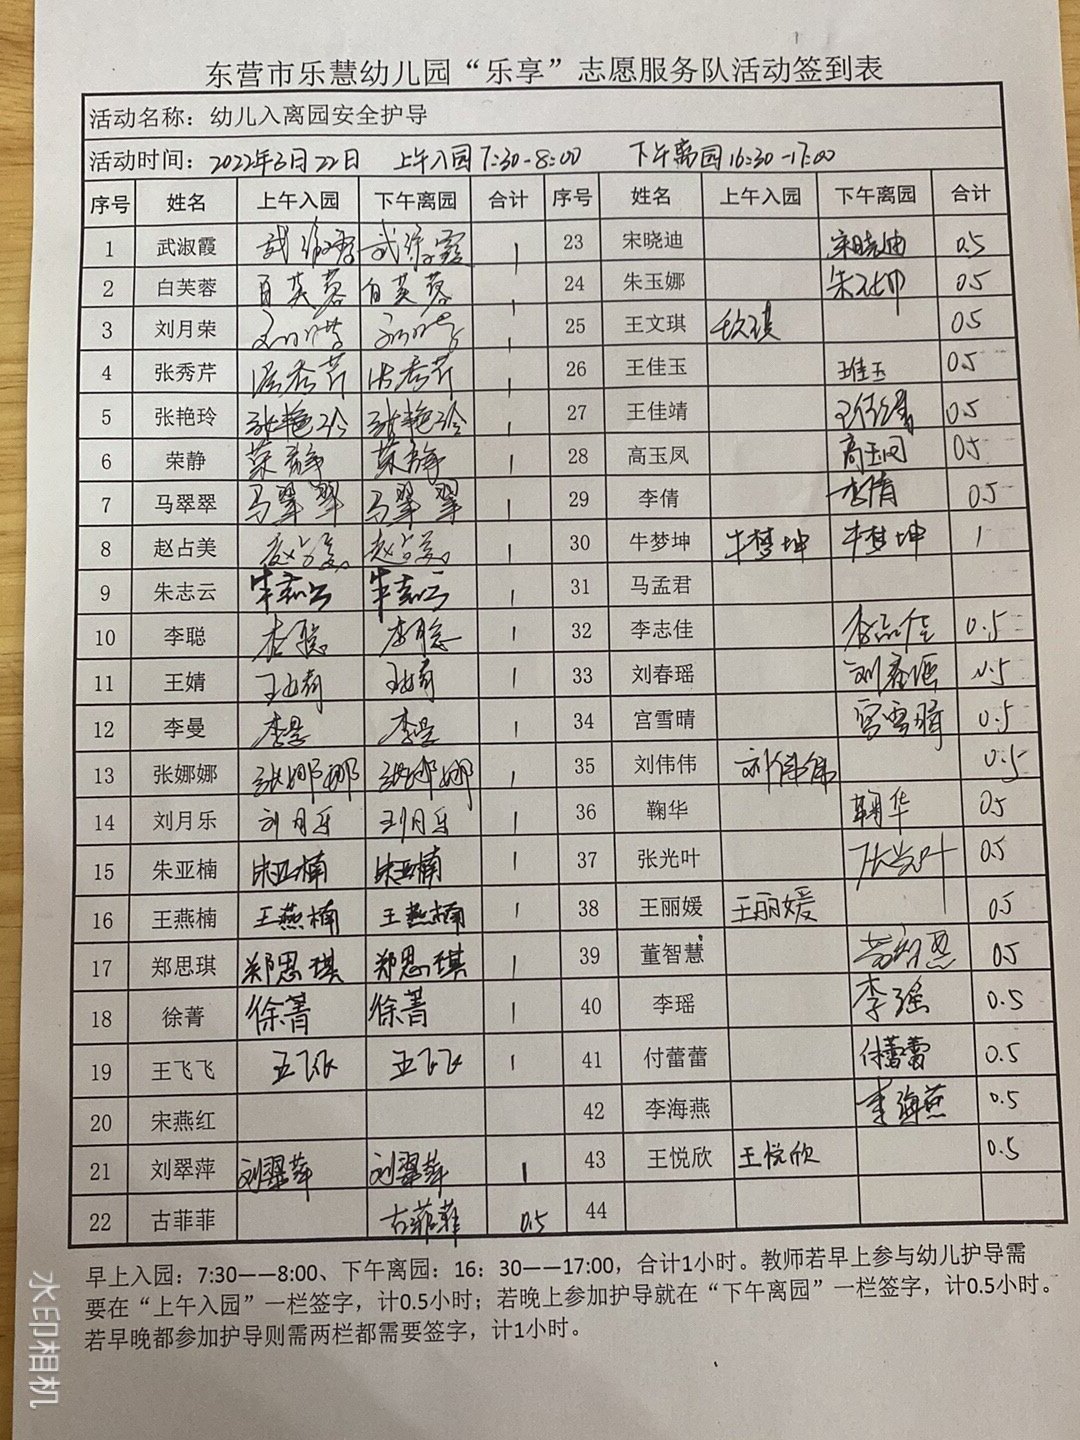 东营市乐慧幼儿园“乐享”志愿服务队活动签到表
活动名称：幼儿入离园安全护导
活动时间：2022年3月22日 上午入园7:30-8:00 下午离园16:30-17:00
序号 姓名 上午入园 下午离园 合计 序号 姓名 上午入园 下午离园 合计
1 武淑霞 武淑霞 武淑霞 1 23 宋晓迪 宋晓迪 0.5
2 白芙蓉 白芙蓉 白芙蓉 1 24 朱玉娜 朱玉娜 0.5
3 刘月荣 刘月荣 刘月荣 1 25 王文琪 王文琪 0.5
4 张秀芹 张秀芹 张秀芹 1 26 王佳玉 王佳玉 0.5
5 张艳玲 张艳玲 张艳玲 1 27 王佳靖 王佳靖 0.5
6 荣静 荣静 荣静 1 28 高玉凤 高玉凤 0.5
7 马翠翠 马翠翠 马翠翠 1 29 李倩 李倩 0.5
8 赵占美 赵占美 赵占美 1 30 牛梦坤 牛梦坤 牛梦坤 1
9 朱志云 朱志云 朱志云 1 31 马孟君
10 李聪 李聪 李聪 1 32 李志佳 李志佳 0.5
11 王婧 王婧 王婧 1 33 刘春瑶 刘春瑶 0.5
12 李曼 李曼 李曼 1 34 宫雪晴 宫雪晴 0.5
13 张娜娜 张娜娜 张娜娜 1 35 刘伟伟 刘伟伟 0.5
14 刘月乐 刘月乐 刘月乐 1 36 鞠华 鞠华 0.5
15 朱亚楠 朱亚楠 朱亚楠 1 37 张光叶 张光叶 0.5
16 王燕楠 王燕楠 王燕楠 1 38 王丽媛 王丽媛 0.5
17 郑思琪 郑思琪 郑思琪 1 39 董智慧 董智慧 0.5
18 徐菁 徐菁 徐菁 1 40 李瑶 李瑶 0.5
19 王飞飞 王飞飞 王飞飞 1 41 付蕾蕾 付蕾蕾 0.5
20 宋燕红 42 李海燕 李海燕 0.5
21 刘翠萍 刘翠萍 刘翠萍 1 43 王悦欣 王悦欣 0.5
22 古菲菲 古菲菲 0.5 44
早上入园：7:30——8:00、下午离园：16：30——17:00，合计1小时。教师若早上参与幼儿护导需
要在“上午入园”一栏签字，计0.5小时；若晚上参加护导就在“下午离园”一栏签字，计0.5小时。
若早晚都参加护导则需两栏都需要签字，计1小时。
水印相机